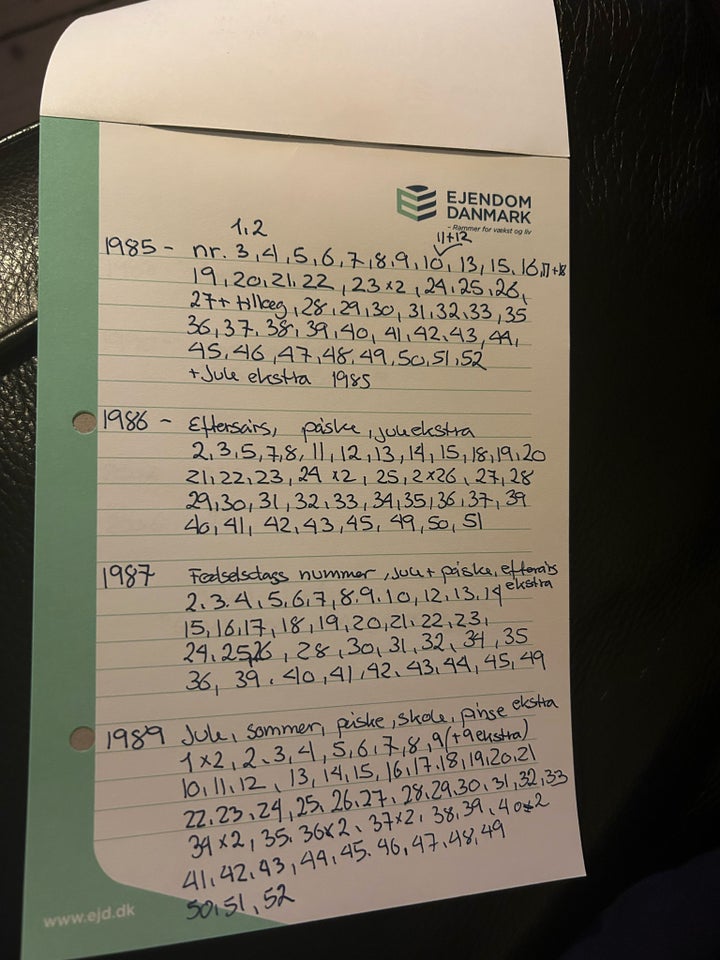 EJENDOM
DANMARK
- Rammer for vækst og liv
1,2
11+12
1985 - nr. 3, 4, 5, 6, 7, 8, 9, 10, 13, 15, 16, 17+18
19, 20, 21, 22, 23 x2, 24, 25, 26,
27 + tillæg, 28, 29, 30, 31, 32, 33, 35
36, 37, 38, 39, 40, 41, 42, 43, 44,
45, 46, 47, 48, 49, 50, 51, 52
+ Jule ekstra 1985
1986 - Efterårs, påske, juleekstra
2, 3, 5, 7, 8, 11, 12, 13, 14, 15, 18, 19, 20
21, 22, 23, 24 x2, 25, 2x26, 27, 28
29, 30, 31, 32, 33, 34, 35, 36, 37, 39
40, 41, 42, 43, 45, 49, 50, 51
1987 Fødselsdags nummer, jul + påske, efterårs
ekstra
2, 3, 4, 5, 6, 7, 8, 9, 10, 12, 13, 14
15, 16, 17, 18, 19, 20, 21, 22, 23,
24, 25, 26, 28, 30, 31, 32, 34, 35
36, 39, 40, 41, 42, 43, 44, 45, 49
1989 Jule, sommer, påske, skole, pinse ekstra
1 x2, 2, 3, 4, 5, 6, 7, 8, 9 (+9 ekstra)
10, 11, 12, 13, 14, 15, 16, 17, 18, 19, 20, 21
22, 23, 24, 25, 26, 27, 28, 29, 30, 31, 32, 33
34 x2, 35, 36x2, 37x2, 38, 39, 40x2
41, 42, 43, 44, 45, 46, 47, 48, 49
50, 51, 52
www.ejd.dk